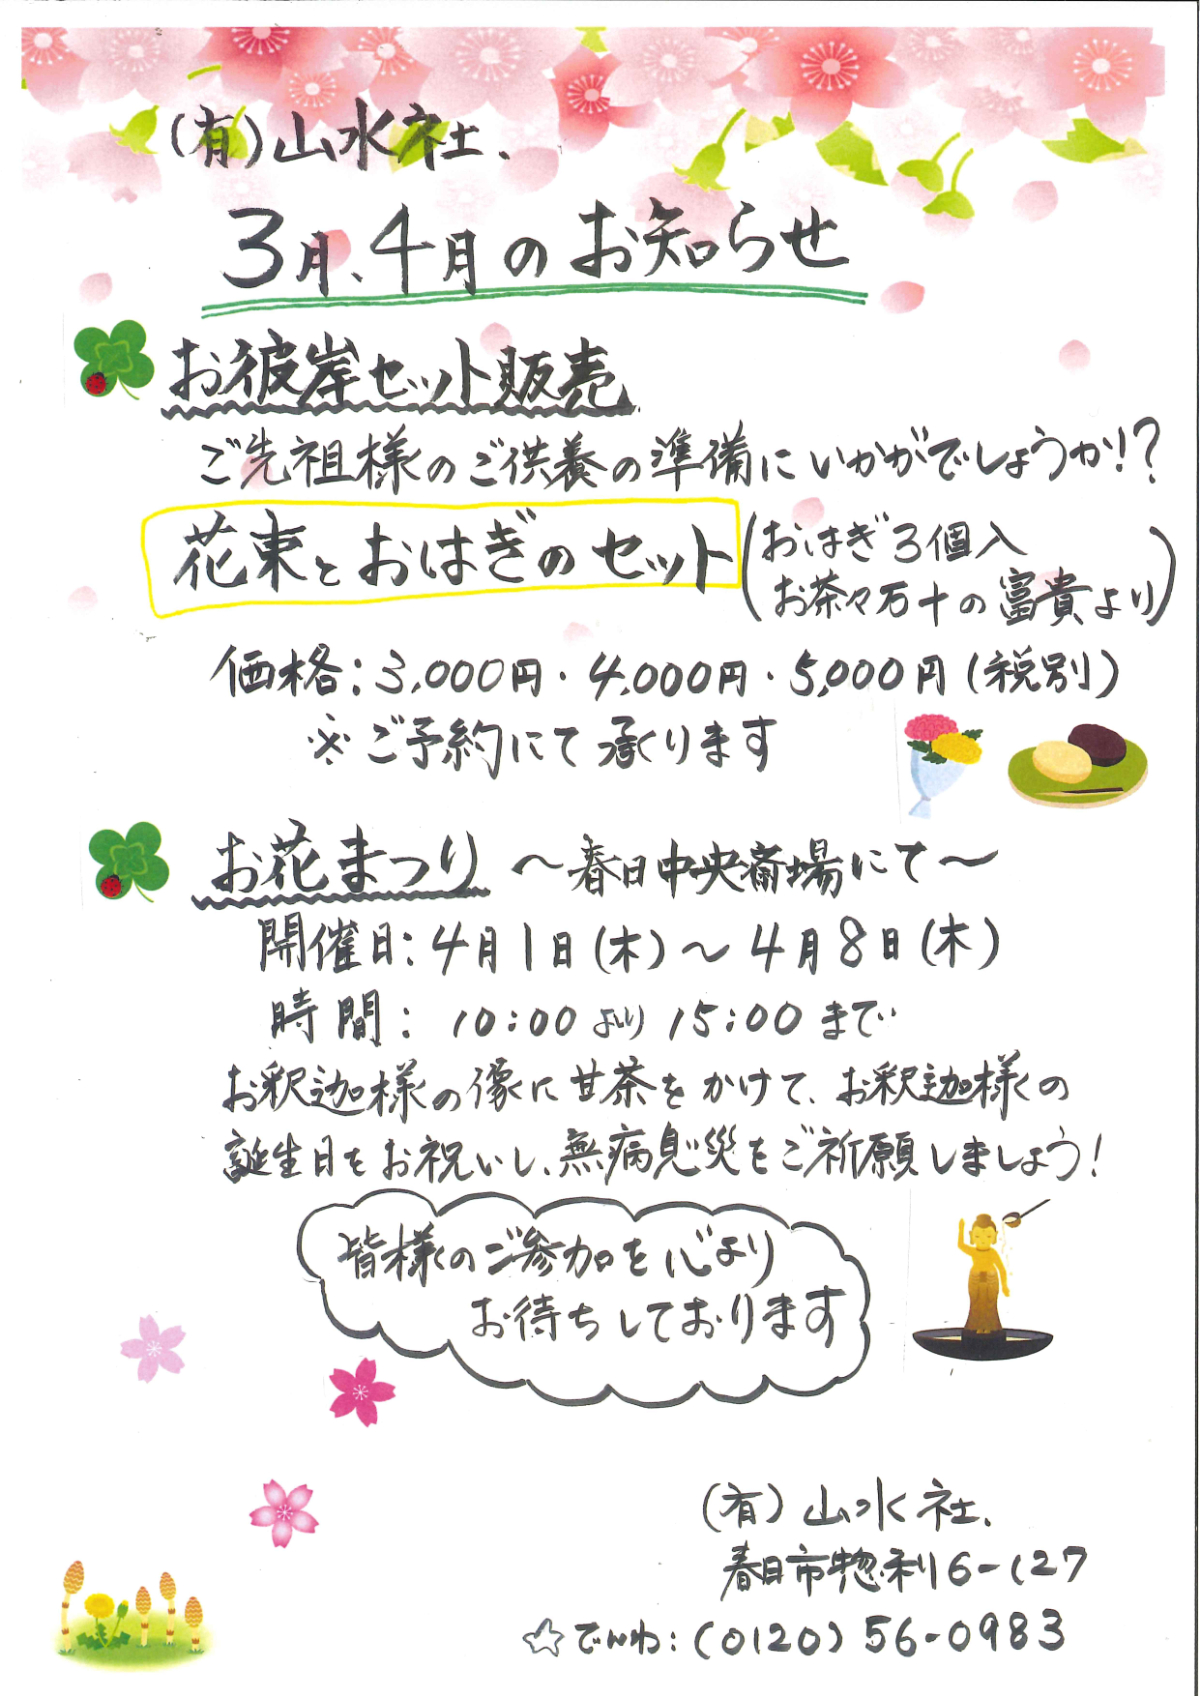 (有)山水社.
3月、4月のお知らせ
お彼岸セット販売
ご先祖様のご供養の準備にいかがでしょうか!?
花束とおはぎのセット
(おはぎ3個入
お茶々万十の富貴より)
価格:3,000円・4,000円・5,000円(税別)
※ご予約にて承ります
お花まつり 〜春日中央斎場にて〜
開催日:4月1日(木)〜4月8日(木)
時間: 10:00より15:00まで
お釈迦様の像に甘茶をかけて、お釈迦様の
誕生日をお祝いし、無病息災をご祈願しましょう!
皆様のご参加を心より
お待ちしております
(有)山水社.
春日市惣利6-127
☆でんわ:(0120)56-0983